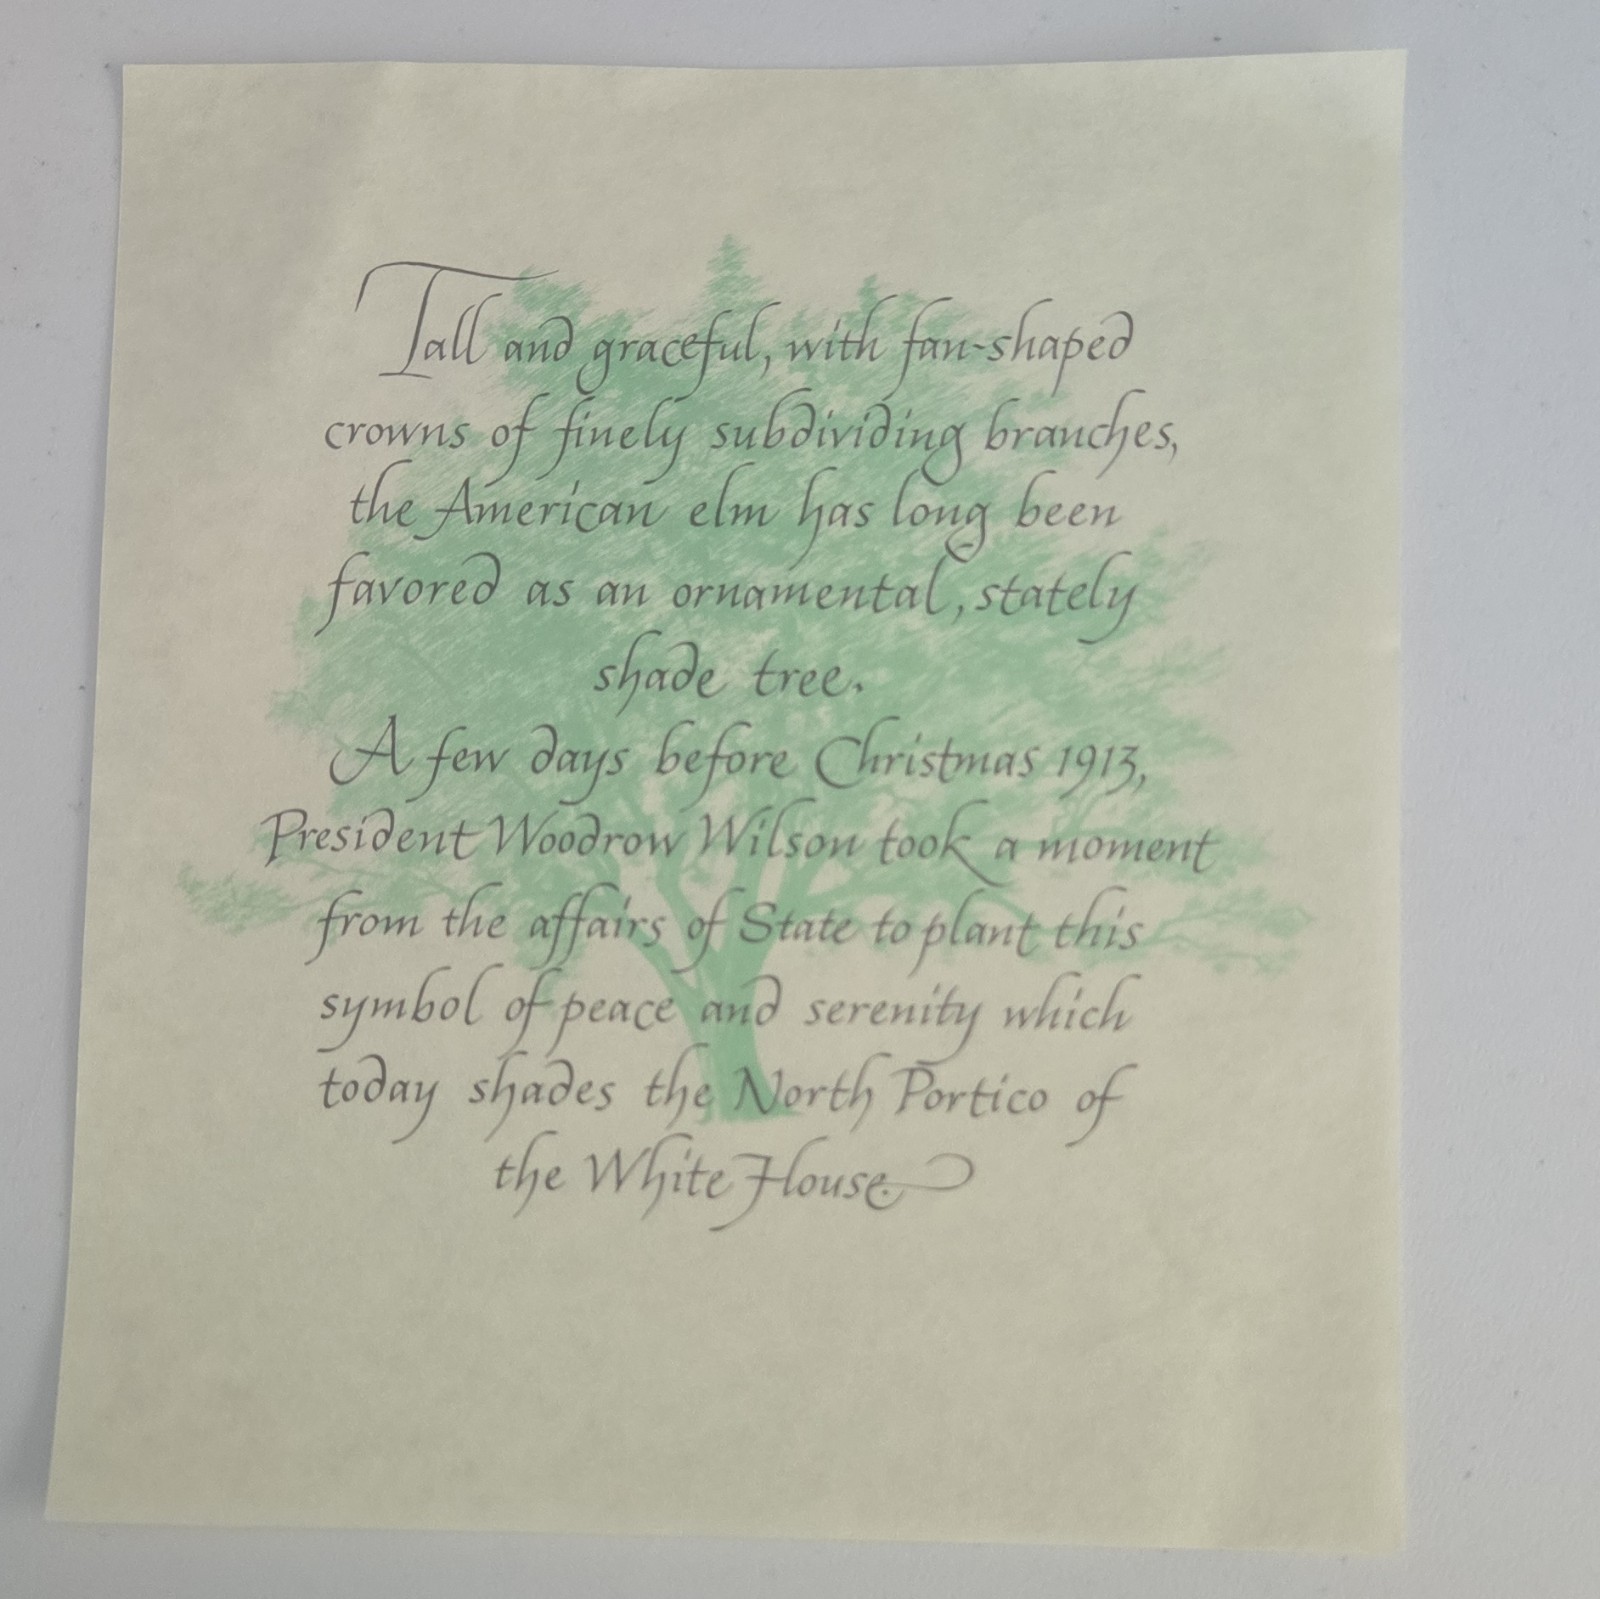 Tall and graceful, with fan-shaped
crowns of finely subdividing branches,
the American elm has long been
favored as an ornamental, stately
shade tree.
A few days before Christmas 1913,
President Woodrow Wilson took a moment
from the affairs of State to plant this
symbol of peace and serenity which
today shades the North Portico of
the White House.